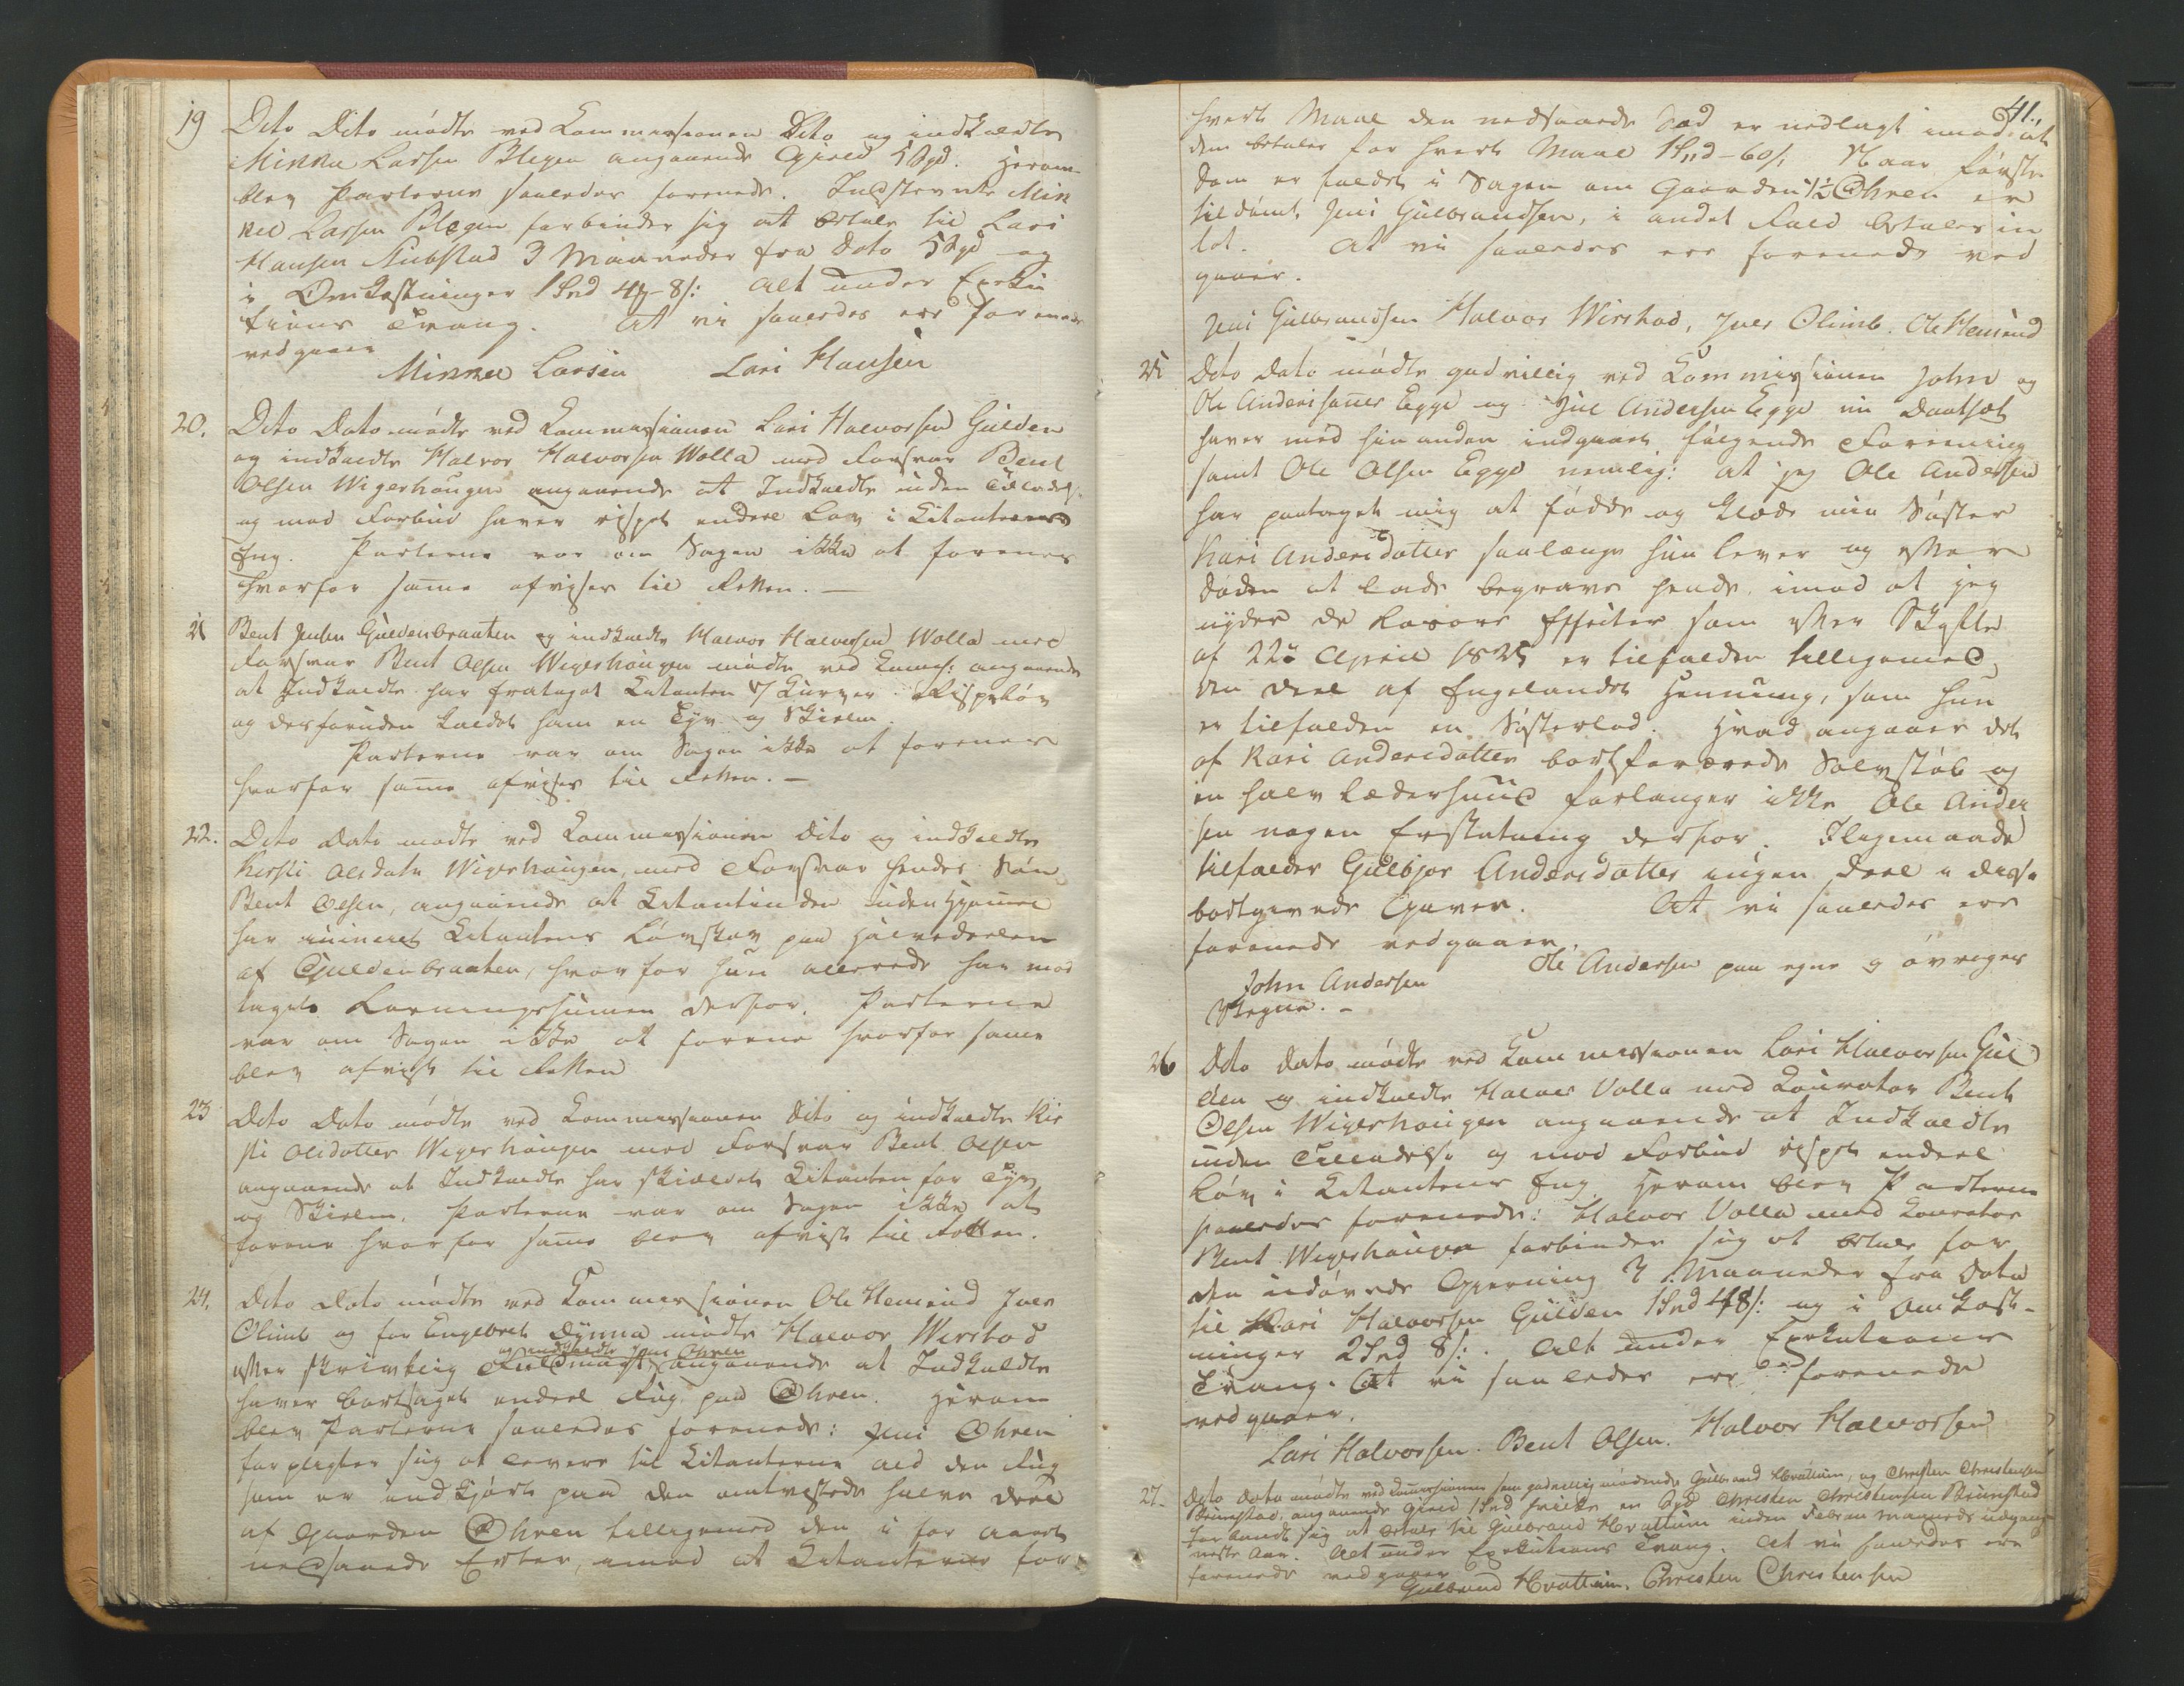 19 Dito Dito mødte ved Kommissionen Dito og indkaldte
Mikkel Larsen Blegen angaaende Gield 5 Spd. Herom
blev Parterne saaledes forenede. Indstevnte Mik
kel Larsen Blegen forbinder sig at betale til Lars
Hansen 3 Maaneder fra Dato 5 Spd og
i Omkostninger 1 Spd 4 - 8 s: alt under Exeku
tions Tvang. At vi saaledes ere forenede
vedgaaer
Mikkel Larsen Lars Hansen
20. Dito Dato mødte ved Kommissionen Lars Halvorsen Gulden
og indkaldte Halvor Halvorsen Wolla med Forsvar Bent
Olsen Wigershougen angaaende at Indkaldte uden Tilladelse
og mod Forbud haver rispet endeel Løv i Citantens
Eng. Parterne var om Sagen ikke at forenes
hvorfor same afvises til Retten. —
21 Bent Jensen Guldenbraaten og indkaldte Halvor Halvorsen Wolla med
Forsvar Bent Olsen Wigershougen mødte ved Komis: angaaende
at Indkaldte har frataget Citanten 7 Kurver Rispeløv
og desforuden kaldet ham en Tyv og Skielm.
Parterne var om Sagen ikke at forenes
hvorfor same afvises til Retten. —
22. Dito Dato mødte ved Kommissionen Dito og indkaldte
Kersti Olsdatter Wigershougen, med Forsvar hendes Søn
Bent Olsen, angaaende at Citantinden uden Hjemel
har ruineret Citantens Løvskov paa Halvedeelen
af Guldenbraaten, hvorfor hun allerede har mod
taget Løsningssumen derfor. Parterne
var om Sagen ikke at forene hvorfor same
blev afvist til Retten
23 Dito Dato mødte ved Kommissionen Dito og indkaldte Kir
sti Olsdatter Wigershougen med Forsvar Bent Olsen
angaaende at Indkaldte har skieldet Citanten for Tyv
og Skielm. Parterne var om Sagen ikke at
forene hvorfor same blev afvist til Retten.
24. Dito Dato mødte ved Kommissionen Ole Hemind Iver
Olimb og for Engebret Dynna mødte Halvor Wirstad
og indkaldte Jens Ohren
efter skrivtlig Fuldmagt, angaaende at Indkaldte
haver borttaget endeel Rug paa Ohren. Herom
blev Parterne saaledes forenede: Jens Ohren
forpligter sig at levere til Citanterne all den Rug
som er indkjørt paa den omtvistede halve deel
af Gaarden Ohren tilligemed den i for aaret
nedsaaede Erter, imod at Citanterne for
41.
hvert Maal den nedsaaede Sæd er nedlagt imod at
dem betales for hvert Maal 1 Spd - 60 s. Naar første
Dom er faldet i Sagen om Gaarden 1/2 Ohren er
tildømt Jens Gulbrandsen, i andet Fald betales in
tet. At vi saaledes ere forenede ved
gaaer.
Jens Gulbrandsen Halvor Wirstad, Iver Olimb. Ole Hemind
25 Dito Dato mødte godvillig ved Kommissionen John og
Ole Anderssøner Egge og Andersen Egge
haver med hinanden indgaaet følgende Forening
samt Ole Olsen Egge nemlig: at jeg Ole Andersen
har paataget mig at fødde og klæde min Søster
Kari Andersdatter saalænge hun lever og efter
Døden at lade begrave hende, imod at jeg
nyder de Løsøre Effecter som efter Skifte
af 22de April 1825 er tilfalden tilligemed
den deel af Engelandet Henning, som hun
er tilfalden en Søsterlod. Hvad angaaer det
af Kari Andersdatter bortforærede Sølvstøb og
en halv Læderhuud forlanger ikke Ole Ander
sen nogen Erstatning derfor. Iligemaade
tilfalder Gulbjør Andersdatter ingen deel i disse
bortgivede Gaver. At vi saaledes ere
forenede vedgaaer.
John Andersen Ole Andersen paa egne og øvriges
Vegne. —
26 Dito Dato mødte ved Kommissionen Lars Halvorsen Gul
den og indkaldte Halvor Volla med Kurator Bent
Olsen Wigershougen angaaende at Indkaldte
uden Tilladelse og mod Forbud rispet endeel
Løv i Citantens Eng. Herom blev Parterne
saaledes forenede: Halvor Volla med Kurator
Bent Wigershougen forbinder sig at betale for
den udøvede Gjerning 3 Maaneder fra Dato
til Lars Halvorsen Gulden 1 Spd 48 s: og i Omkost-
ninger 2 Spd 8 s:. Alt under Exekutions
Tvang. At vi saaledes ere forenede
vedgaaer.
Lars Halvorsen. Bent Olsen. Halvor Halvorsen
27. Dito Dato mødte ved Kommissionen som godvillig mødende Gulbrand Hvattum, og Christen Christensen
Brunstad, angaaende Gield 1 Spd hvilke en Spd Christen Christensen Brunstad
forbandt sig at betale til Gulbrand Hvattum inden Februar Maaneds udgang
neste Aar. Alt under Exekutions Tvang. At vi saaledes ere
forenede vedgaaer
Gulbrand Hvattum. Christen Christensen